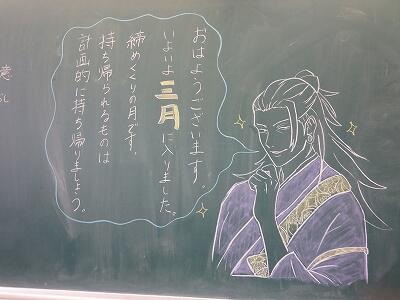 おはようございます。
いよいよ三月に入りました。
締めくくりの月です。
持ち帰られるものは
計画的に持ち帰りましょう。